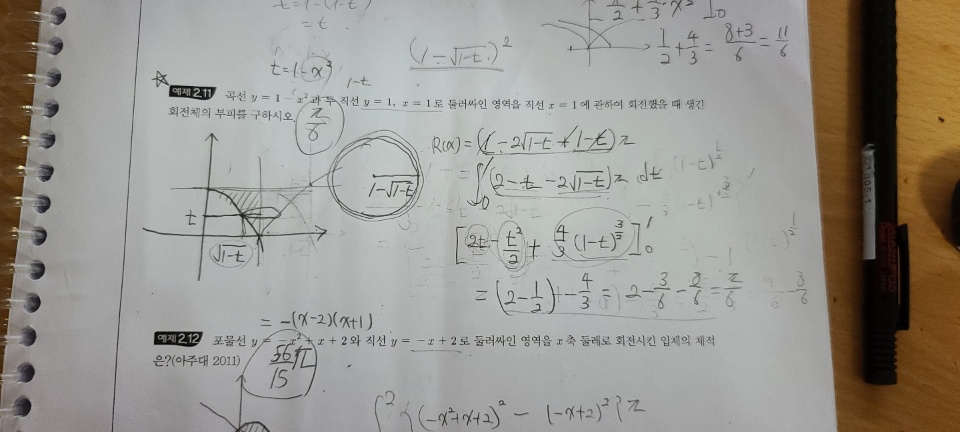 t = 1-(1-t)
= t
t = 1-x²
(1-√1-t)²
1/2 + 4/3 = 8+3/6 = 11/6
1-t
예제 2.11 곡선 y = 1 - x² 과 두 직선 y = 1, x = 1로 둘러싸인 영역을 직선 x = 1에 관하여 회전했을 때 생긴
회전체의 부피를 구하시오.
π/6
R(x) = (1 - 2√1-t + 1-t)π
1-√1-t
= ∫₀¹ (2-t-2√1-t)π dt
t
√1-t
[2t - t²/2 + 4/3 (1-t)^3/2]₀¹
= (2 - 1/2) - 4/3 = 2 - 3/6 - 8/6 = π/6
= -(x-2)(x+1)
예제 2.12 포물선 y = -x² + x + 2 와 직선 y = -x + 2로 둘러싸인 영역을 x 축 둘레로 회전시킨 입체의 체적
은?(아주대 2011)
56/15 π
∫ ² {(-x²+x+2)² - (-x+2)²}π